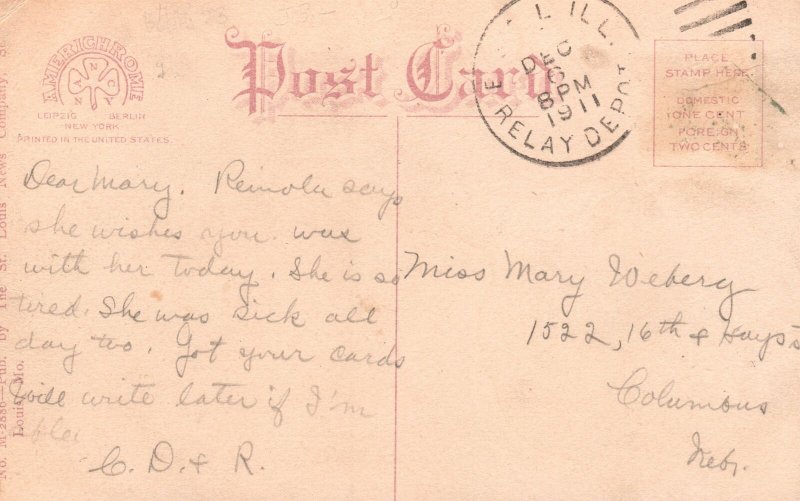 AMERICHROME
LEIPZIG BERLIN
NEW YORK
PRINTED IN THE UNITED STATES.
Post Card
L ILL.
DEC
6
8 PM
1911
E
RELAY DEPOT
PLACE
STAMP HERE
DOMESTIC
ONE CENT
FOREIGN
TWO CENTS
No. M-2886—Pub. by The St. Louis News Company, St.
Louis, Mo.
Dear Mary. Reinola says
she wishes you was
with her today. She is so
tired. She was sick all
day too. Got your cards
Will write later if I'm
C. D. & R.
Miss Mary Weberg
1522, 16th &
Columbus
Nebr.